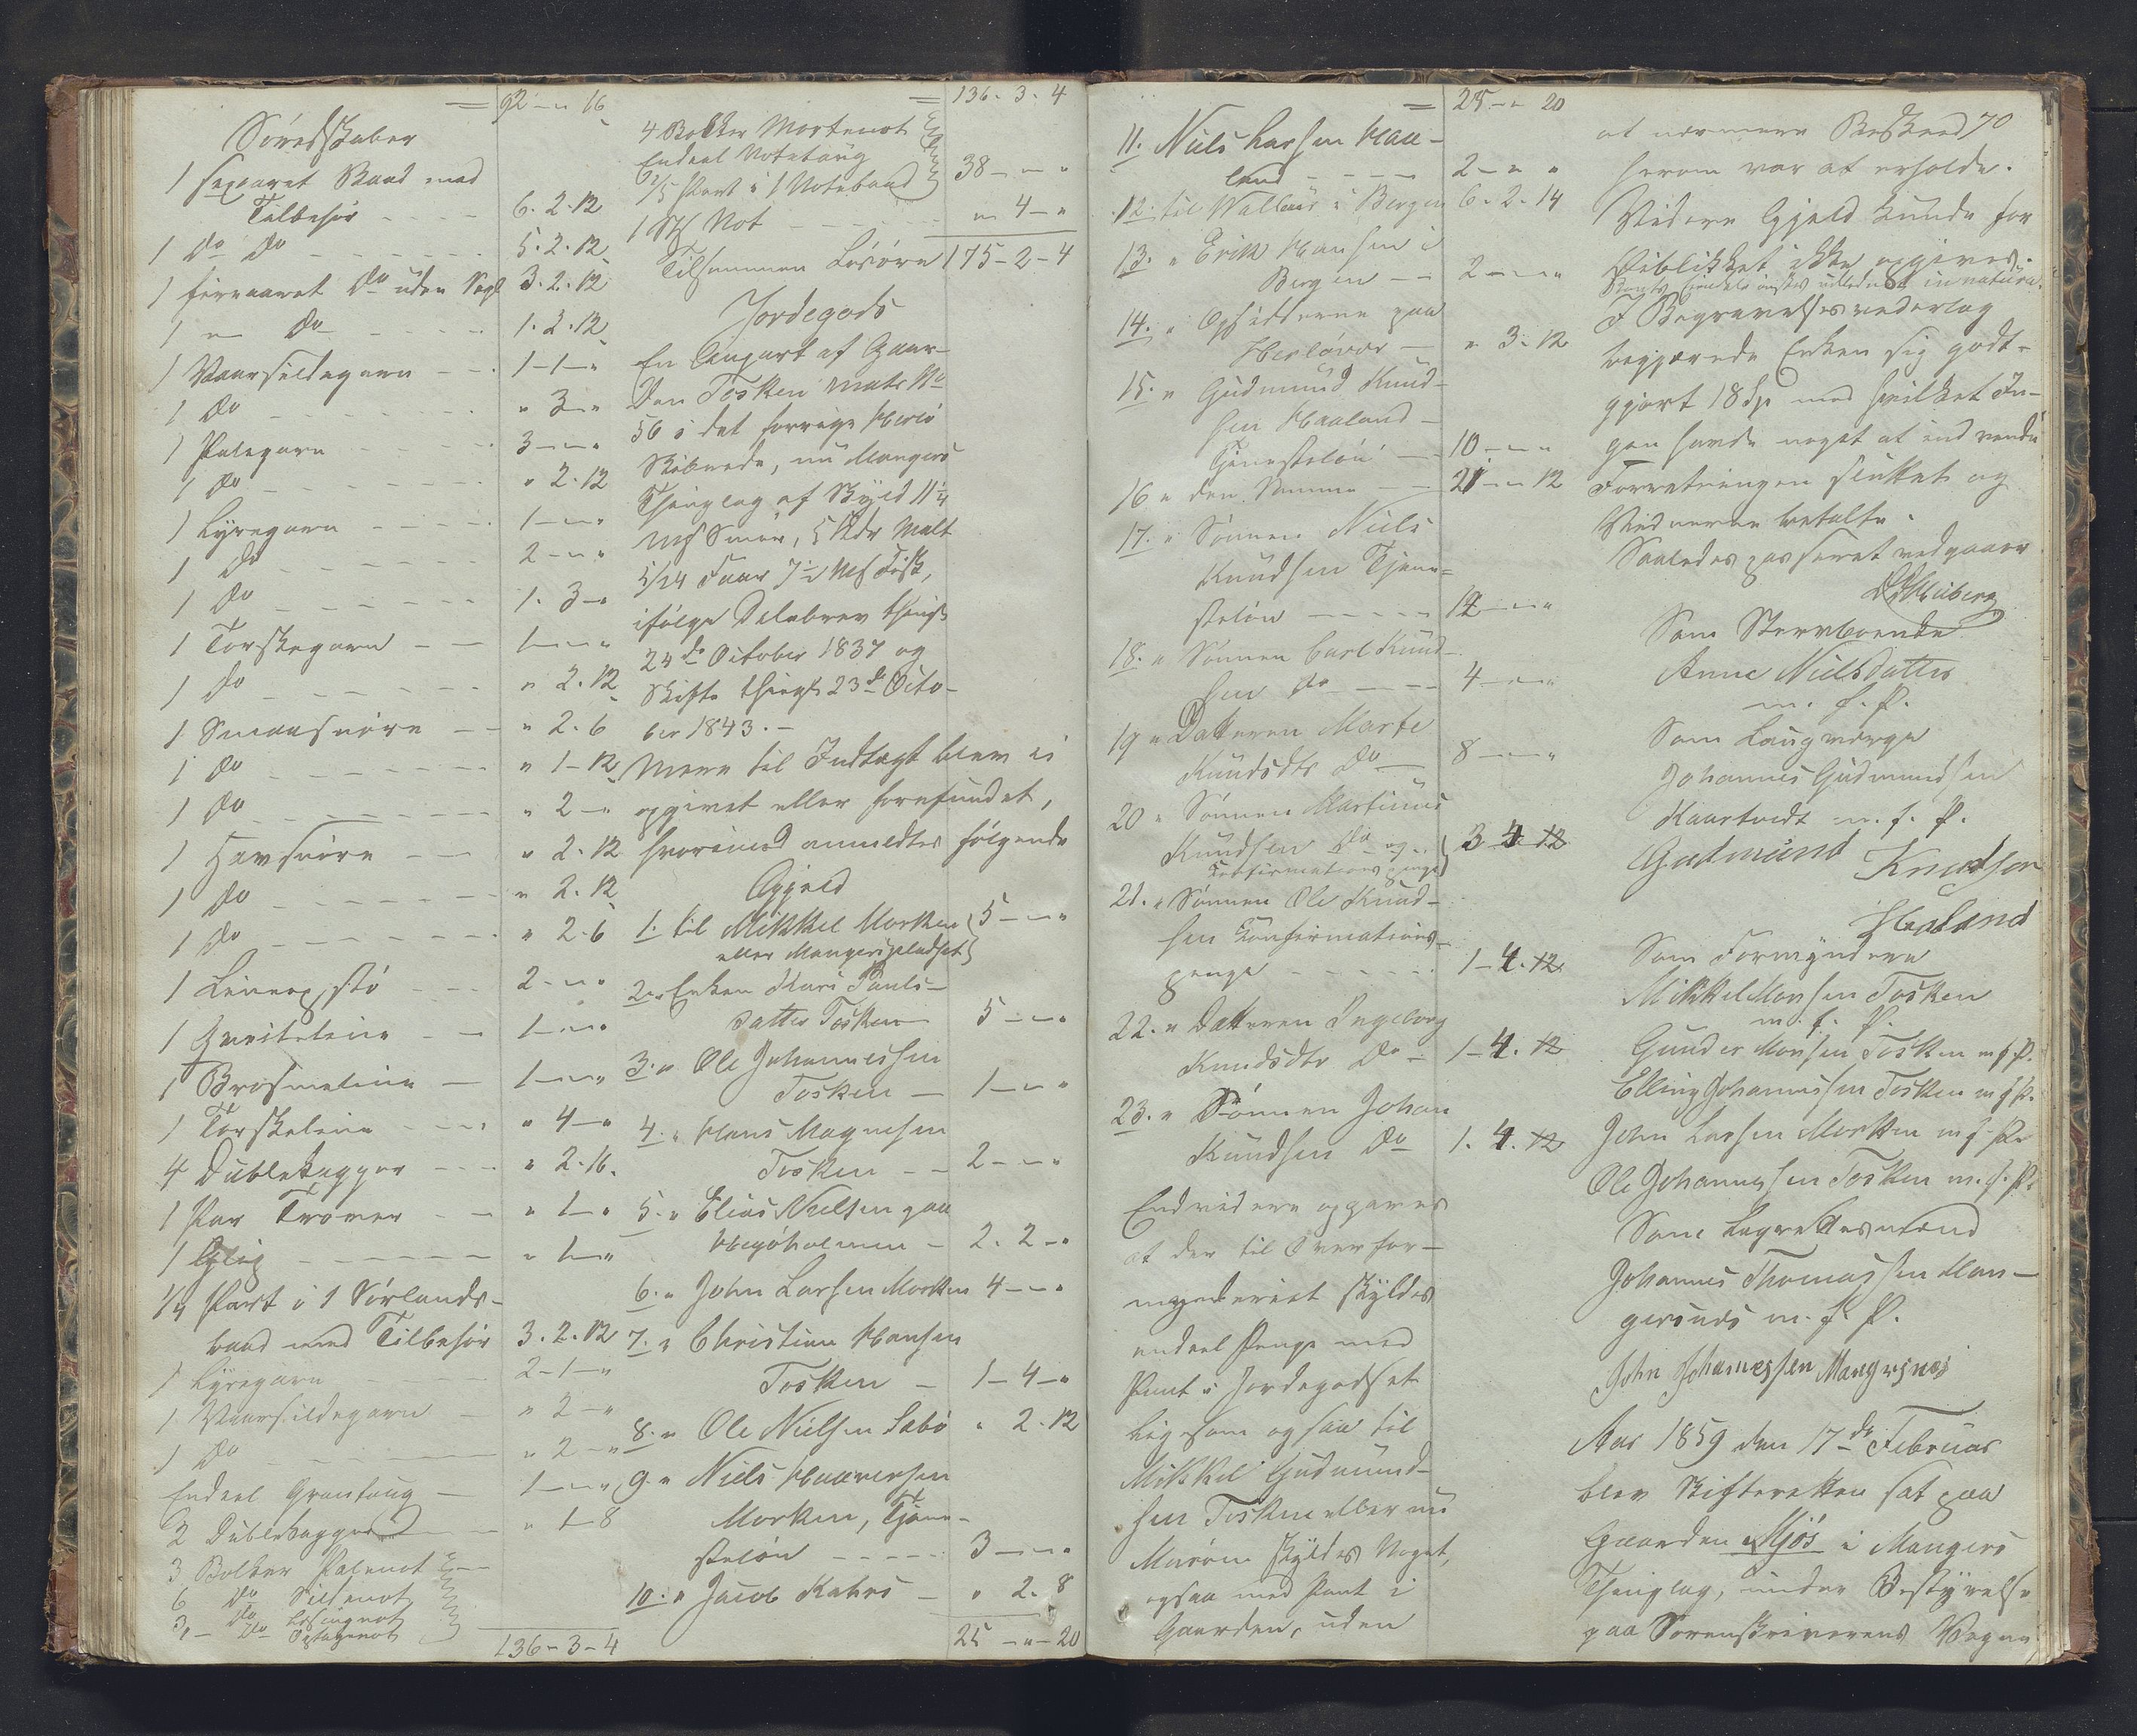 = 92 - " 16
Søredskaber
1 sexaaret Baad med
Tilbehør - - - - 6. 2. 12
1 do do - - - - 5. 2. 12
1 firaaret do uden Segl 3. 2. 12
1 " do - - - - 1. 2. 12
1 Vaarsildegarn - - 1 - 1 - "
1 do - - - - " 3 - "
1 Palegarn - - 3 - " - "
1 do - - - - " 2. 12
1 Lyregarn - - - - 1 - " - "
1 do - - - - 2 - " - "
1 do - - - - 1. 3 - "
1 Torskegarn - - 1 - " - "
1 do - - - - " 2. 12
1 Smaasnøre - - " 2. 6
1 do - - - - " 1 - 12
1 do - - - - " 2 - "
1 Havsnøre - - " 2. 12
1 do - - - - " 2. 12
1 do - - - - " 2. 6
1 Lineopstø - - 2 - " - "
1 Qveiteline - 1 - " - "
1 Brosmeline - 1 - " - "
1 Torskeline - - - " 4 - "
4 Dublekagger - - - " 2. 16.
1 Par Troner - - " 1 - "
1 Glip - - - - " 1 - "
1/4 Part i 1 Sørlands-
baad med Tilbehør 3. 2. 12
1 Lyregarn - - - 2 - 1 - "
1 Vaarsildegarn - " 2 - "
1 do - - - - " 2 - "
Endeel Grantoug - 1 - " - "
2 Dublekagger - " 1 - 8
3 Bolker Palenot
6 do Sildenot
3 - do Losingnot
- do Optagenot
136 - 3 - 4
= 136. 3. 4
4 Bolker Mortenot
Endeel Nototoug
1/5 Part i 1 Notebaad 38 - " - "
1 Not - - - - " 4 - "
Tilsammen Løsøre 175 - 2 - 4
Jordegods
En Anpart af Gaar-
den Tosken Matr No
56 i det forrige Herlø
Skibrede, nu Mangers
Thinglag af Skyld 11 1/4
Smør, 5 Kdr Malt
5/24 Faar 7 1/2 Fisk,
ifølge Delebrev thingl
24de October 1837 og
Skifte thingl 23de Octo-
ber 1843. -
Mere til Indtægt blev ei
opgivet eller forefundet,
hvorimod anmeldtes følgende
Gjeld
1. til Mikkel Morken 5 - " - "
eller Mangerspladset
2. " Enken Kari Pauls-
datter Tosken 5 - " - "
3. " Ole Johannessen
Tosken - 1 - " - "
4. " Hans Magnesen
Tosken - - 2 - " - "
5. " Elias Nielsen paa
Høgøholmen - 2. 2 - "
6. " John Larsen Morken 4 - " - "
7. " Christian Hansen
Tosken - 1 - 4 - "
8. " Ole Nielsen Sabø " 2. 12
9. " Niels Haaversen
Morken, Tjene-
steløn - - - - 3 - " - "
10. " Jacob Kahrs - " 2. 8
25 - " - 20
= 25 - " 20
11. Niels Larsen Haa-
land - - - - 2 - " "
12. til Wallace i Bergen 6. 2. 14
13. " Erik Hansen i
Bergen - - 2 - " - "
14. " Opsidderne paa
Herløvær - " 3. 12
15. " Gudmund Knud-
sen Haaland
Tjenesteløn - 10 - " - "
16 " den Samme - 21 - " 12
17. " Sønnen Niels
Knudsen Tjene-
steløn - - - - 12 - " - "
18. " Sønnen Carl Knud-
sen do - - - 4 - " - "
19 " Datteren Marte
Knudsdtr do - 8 - " - "
20 " Sønnen Martinus
Knudsen do og 3 4 12
Confirmationspenge
21. " Sønnen Ole Knud-
sen Confirmations-
penge - - - - 1 - 4. 12
22. " Datteren Ingeborg
Knudsdtr do - 1 - 4. 12
23. " Sønnen Johan
Knudsen do 1. 4. 12
Endvidere opgaves
at der til Overfor-
mynderiet skyldes
endeel Penge med
Pant i Jordegodset
ligesom ogsaa til
Mikkel Gudmund-
sen Tosken eller nu
Marøen skyldes Noget,
ogsaa med Pant i
Gaarden, uden
70
at nærmere Beskeed
herom var at erholde.
Videre Gjeld kunde for
Øieblikket ikke opgives.
Boets Eiendele ønskes udlodnet in natura.
I Begravelsesvederlag
begjærede Enken sig godt-
gjort 18 Sp med hvilket In-
gen havde noget at indvende
Forretningen sluttet og
Vidnerne betalte.
Saaledes passeret vedgaaer
Heiberg
Som Stervboenke
Anne Nielsdatter
m. f. P.
Som Laugværge
Johannes Gudmundsen
Kaartvedt m. f. P.
Gudmund Knudson
Haland
Som Formyndere
Mikkel Monsen Tosken
m. f. P.
Gunder Monsen Tosken m f P.
Elling Johannessen Tosken m f P.
John Larsen Morken m f P.
Ole Johannessen Tosken m. f. P.
Som Lagrettesmænd
Johannes Thomassen Man-
gersnæs m. f. P.
John Johannessen Mangersnæs
Aar 1859 den 17de Februar
blev Skifteretten sat paa
Gaarden Mjøs i Mangers
Thinglag, under Bestyrelse
paa Sorenskriverens Vegne